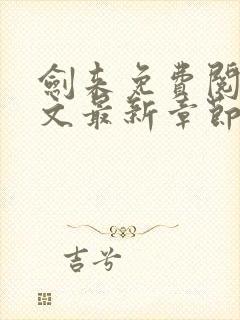 劍来免費閱
文最新章節
吉兮